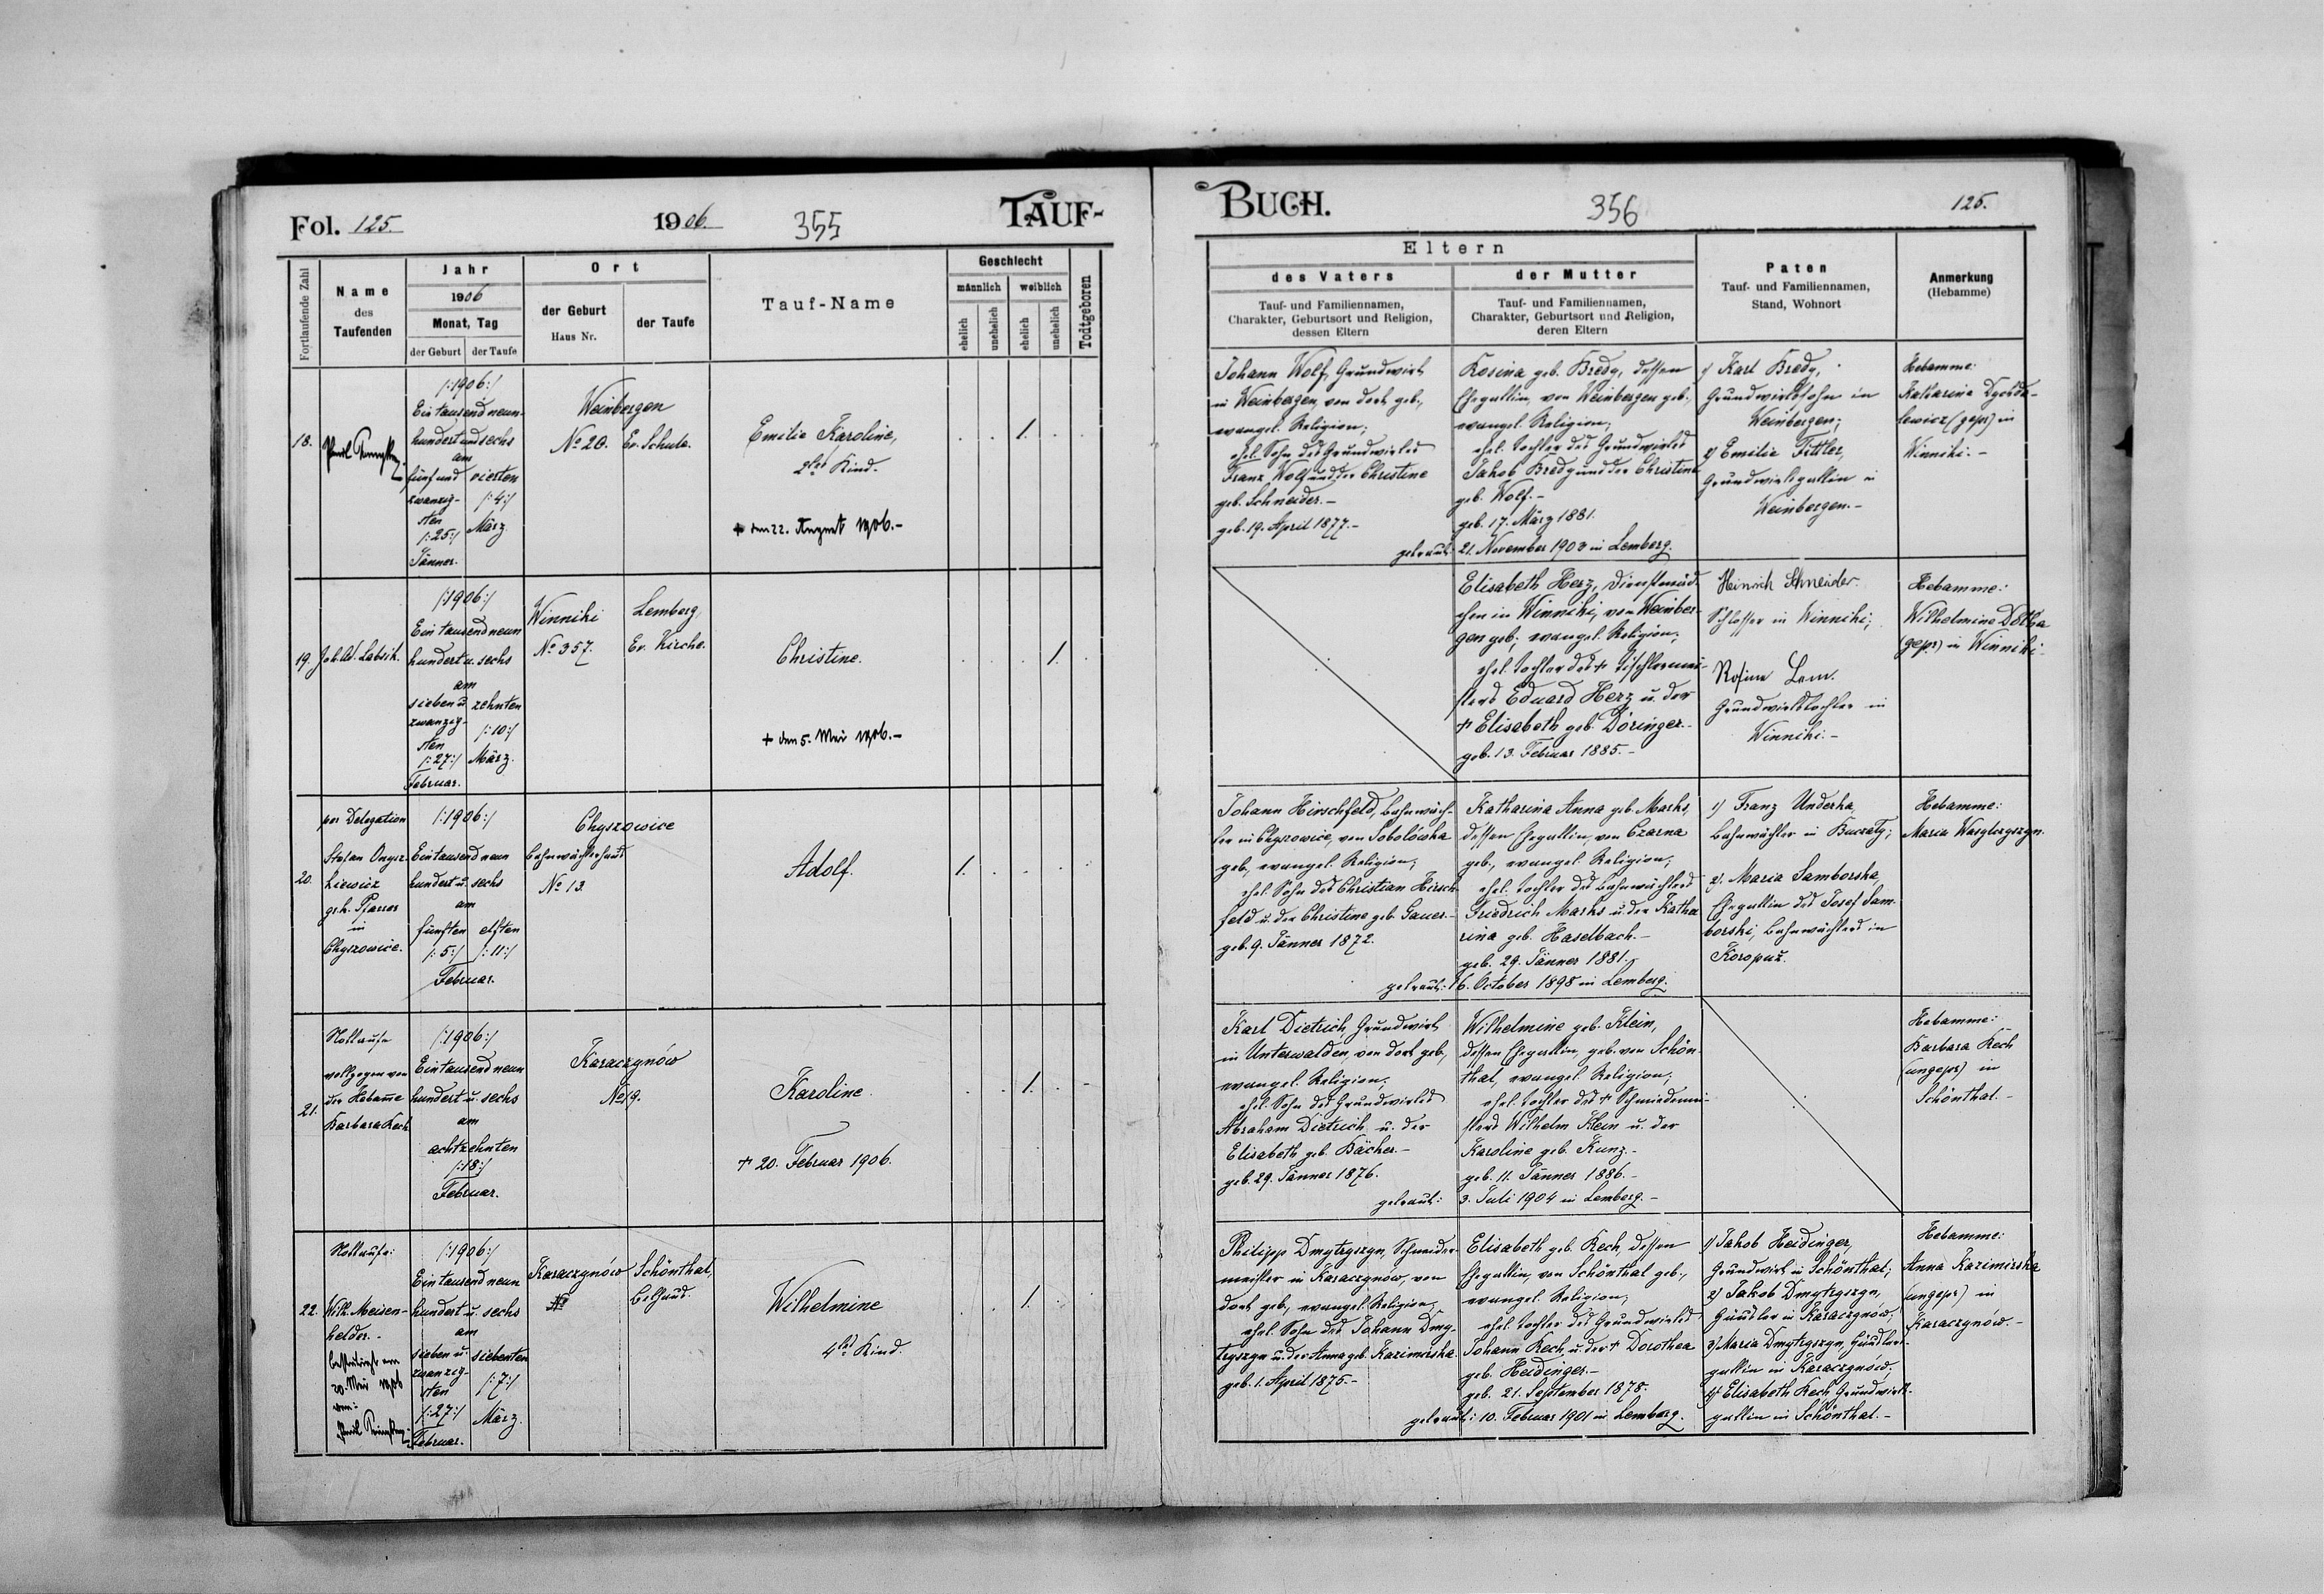 Fol. 125.
1906.
355
TAUF-
Fortlaufende Zahl
Name
des
Taufenden
Jahr
1906
Monat, Tag
der Geburt
der Taufe
Ort
der Geburt
Haus Nr.
der Taufe
Tauf-Name
Geschlecht
männlich
weiblich
ehelich
unehelich
ehelich
unehelich
Todtgeboren
18.
/:1906:/
Ein tausend neun-
hundert und sechs
am
fünf und
zwanzig-
sten
/:25:/
Jänner.
vierten
/:4:/
März.
Weinbergen
No 20.
Ev. Schule.
Emilie Karoline,
2tes Kind.
+ den 22. August 1906.-
1.
19.
Joh. Ad. Labsik.
/:1906:/
Ein tausend neun
hundert u. sechs
am
sieben u.
zwanzig-
sten
/:27:/
Februar.
zehnten
/:10:/
März.
Winniki
No 357.
Lemberg,
Ev. Kirche.
Christine.
+ den 5. Mai 1906.-
1.
20.
per Delegation
Stefan
gr. k. Pfarrer
in
Chyszowice.
/:1906:/
Ein tausend neun
hundert u. sechs
am
fünften
/:5:/
elften
/:11:/
Februar.
Chyszowice
Bahnwächterhaus
No 13.
Adolf.
1.
21.
Nottaufe
vollzogen von
der Hebamme
Barbara Kech
/:1906:/
Ein tausend neun
hundert u. sechs
am
achtzehnten
/:18:/
Februar.
Karaczynów
No 19.
Karoline.
+ 20. Februar 1906.
1.
22.
Nottaufe:
Wilh. Meisen-
helder.-
bestätigt am
20. Mai 1906
von:
/:1906:/
Ein tausend neun
hundert u. sechs
am
sieben u.
zwanzig-
sten
/:27:/
Februar.
siebenten
/:7:/
März.
Karaczynów
No
Schönthal,
Bethaus.
Wilhelmine
4tes Kind.
1.
BUCH.
356
125.
Eltern
des Vaters
Tauf- und Familiennamen,
Charakter, Geburtsort und Religion,
dessen Eltern
der Mutter
Tauf- und Familiennamen,
Charakter, Geburtsort und Religion,
deren Eltern
Paten
Tauf- und Familiennamen,
Stand, Wohnort
Anmerkung
(Hebamme)
Johann Wolf, Grundwirt
in Weinbergen, von dort geb.,
evangel. Religion;
ehel. Sohn des Grundwirtes
Franz Wolf und der Christine
geb. Schneider.-
geb. 19. April 1877.-
Rosina geb. Bredy, dessen
Ehegattin, von Weinbergen geb.,
evangel. Religion;
ehel. Tochter des Grundwirtes
Jakob Bredy und der Christine
geb. Wolf.-
geb. 17. März 1881.
getraut: 21. November 1903 in Lemberg.
1) Karl Bredy,
Grundwirtssohn in
Weinbergen;
2) Emilie Fittler,
Grundwirtsgattin in
Weinbergen.-
Hebamme:
Katharina
lewicz (gepr) in
Winniki.-
Elisabeth Herz, Dienstmäd-
chen in Winniki, von Weinber-
gen geb., evangel. Religion;
ehel. Tochter des + Tischlermei-
sters Eduard Herz u. der
+ Elisabeth geb. Döringer.-
geb. 13. Februar 1885.-
Heinrich Schneider
Schlosser in Winniki;
Rosina Lem.
Grundwirtstochter in
Winniki.-
Hebamme:
Wilhelmine
(gepr) in Winniki.
Johann Hirschfeld, Bahnwäch-
ter in Chyszowice, von Sobolówka
geb., evangel. Religion;
ehel. Sohn des Christian Hirsch-
feld u. der Christine geb. Gauer.-
geb. 9. Jänner 1872.
Katharina Anna geb. Marks,
dessen Ehegattin, von Czarna
geb., evangel. Religion;
ehel. Tochter des Bahnwächters
Friedrich Marks u. der Katha-
rina geb. Haselbach.-
geb. 29. Jänner 1881.
getraut: 16. October 1898 in Lemberg.
1) Franz Underka,
Bahnwächter in Buczaly;
2) Maria Samborska,
Ehegattin des Josef Sam-
borski, Bahnwächters in
Koropuż.
Hebamme:
Maria Wasylczyszyn.
Karl Dietrich, Grundwirt
in Unterwalden, von dort geb.,
evangel. Religion;
ehel. Sohn des Grundwirtes
Abraham Dietrich u. der
Elisabeth geb. Bächer.-
geb. 29. Jänner 1876.
Wilhelmine geb. Klein,
dessen Ehegattin, geb. von Schön-
thal, evangel. Religion;
ehel. Tochter des + Schmiedemei-
sters Wilhelm Klein u. der
Karoline geb. Kunz.-
geb. 11. Jänner 1886.-
getraut: 3. Juli 1904 in Lemberg.-
Hebamme:
Barbara Kech
(ungepr) in
Schönthal.-
Philipp Dmytryszyn, Schneider-
meister in Karaczynów, von
dort geb., evangel. Religion;
ehel. Sohn des Johann Dmy-
tryszyn u. der Anna geb. Kazimirska.
geb. 1. April 1875.-
Elisabeth geb. Kech, dessen
Ehegattin, von Schönthal geb.,
evangel. Religion;
ehel. Tochter des Grundwirtes
Johann Kech u. der + Dorothea
geb. Heidinger.-
geb. 21. September 1878.
getraut: 10. Februar 1901 in Lemberg.
1) Jakob Heidinger,
Grundwirt in Schönthal;
2) Jakob Dmytryszyn,
Häusler in Karaczynów;
3) Maria Dmytryszyn, Häusler-
gattin in Karaczynów,
4) Elisabeth Kech Grundwirts-
gattin in Schönthal.-
Hebamme:
Anna Kazimirska
(ungepr) in
Karaczynów.-